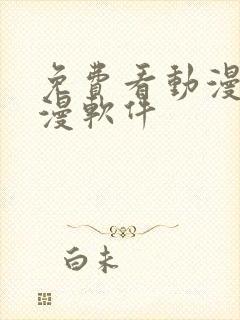 免費看動漫
漫軟件
白未